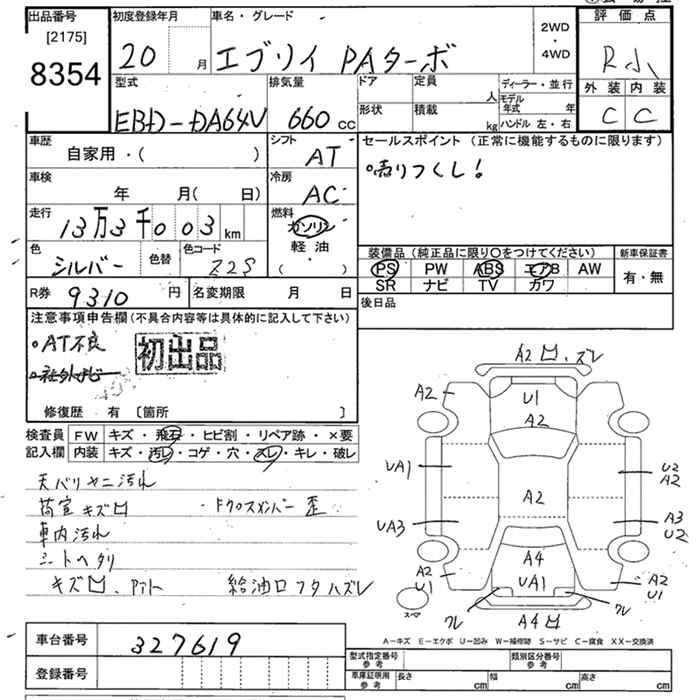 出品番号
[2175]
8354
初度登録年月
20 月
車名・グレード
エブリイ PAターボ
2WD
・
4WD
評価点
R小
外装 内装
C C
型式
EBD-DA64V
排気量
660 cc
ドア
定員
人
形状
積載
kg
ディーラー・並行
モデル年式 年
ハンドル 左・右
車歴
自家用・( )
シフト
AT
セールスポイント (正常に機能するものに限ります)
売りつくし!
車検
年 月( 日)
冷房
AC
走行
13万3千003 km
燃料
ガソリン
軽油
・
( )
色
シルバー
色替
色コード
Z2S
装備品 (純正品に限り○をつけてください)
PS PW ABS エアB AW
SR ナビ TV カワ
新車保証書
有・無
R券 9310 円
名変期限 月 日
後日品
注意事項申告欄 (不具合内容等は具体的に記入して下さい)
・AT不良
・社外ナビ
初出品
修復歴 有 〔箇所 〕
検査員記入欄
FW キズ・飛石・ヒビ割・リペア跡・×要
内装 キズ・汚レ・コゲ・穴・スレ・キレ・破レ
天バリヤニ汚れ
荷室キズ凹 ・Fクロスメンバー歪
車内汚れ
シートヘタリ
キズ凹、アト 給油口フタハズレ
A2凹、ズレ
A2
U1
A2
UA1
U2
A2
A2
UA3
A3
U2
A2
U1
A4
UA1
A2
U1
ワレ
ワレ
スペア
A4凹
A－キズ E－エクボ U－凹み W－補修跡 S－サビ C－腐食 XX－交換済
車台番号
327619
登録番号
型式指定番号
参考
類別区分番号
参考
車庫証明用
参考
長さ cm
幅 cm
高さ cm